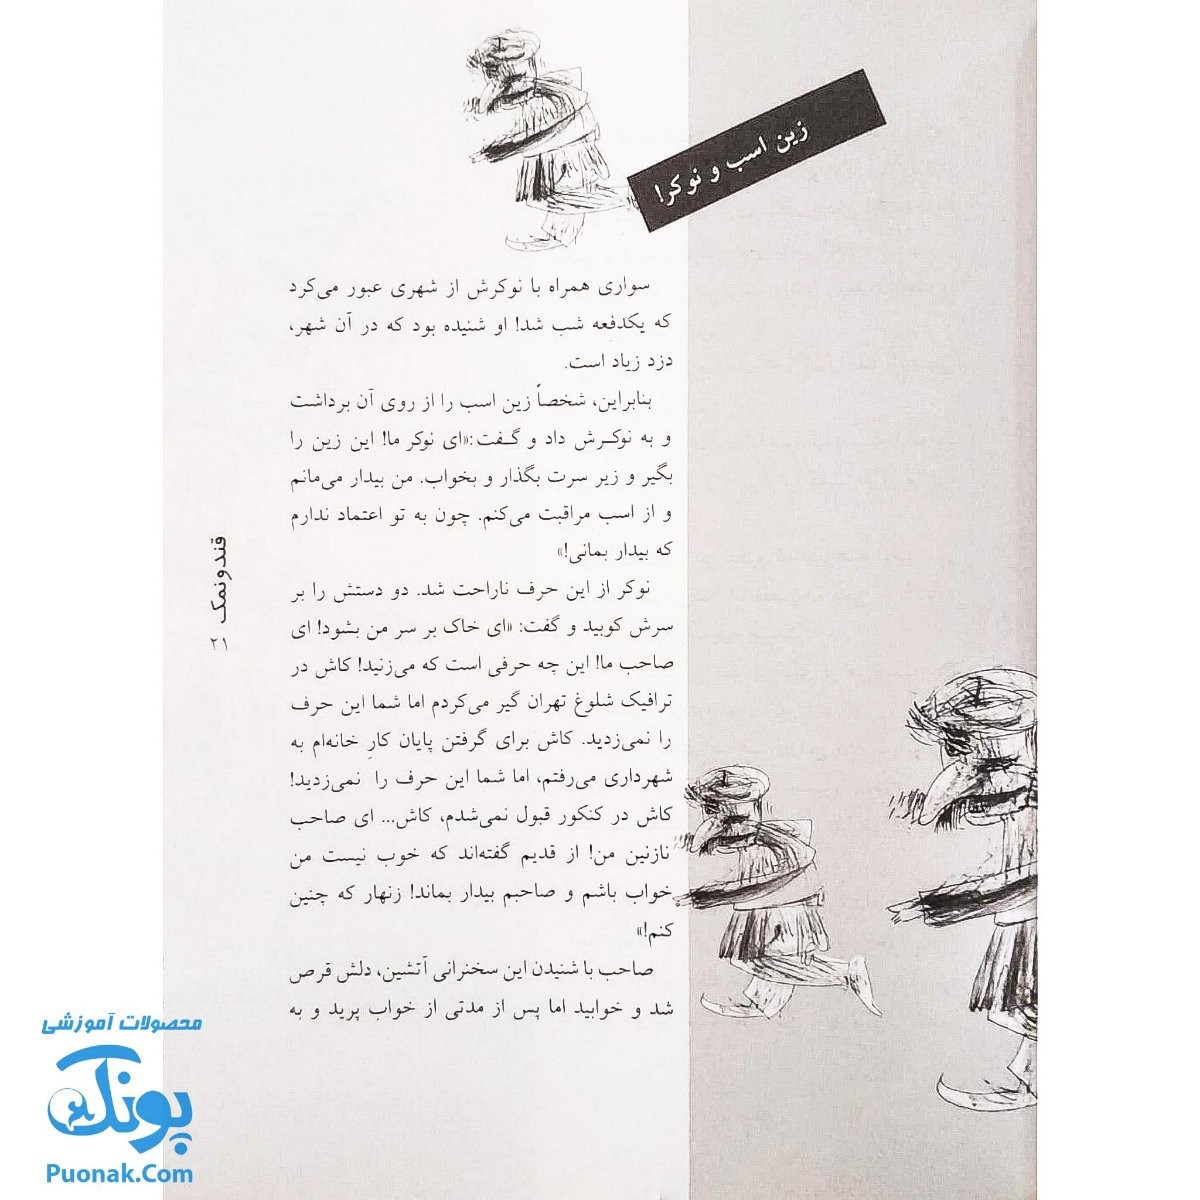 زین اسب و نوکر!
سواری همراه با نوکرش از شهری عبور می‌کرد
که یکدفعه شب شد! او شنیده بود که در آن شهر،
دزد زیاد است.
بنابراین، شخصاً زین اسب را از روی آن برداشت
و به نوکرش داد و گفت:«ای نوکر ما! این زین را
بگیر و زیر سرت بگذار و بخواب. من بیدار می‌مانم
و از اسب مراقبت می‌کنم. چون به تو اعتماد ندارم
که بیدار بمانی!»
نوکر از این حرف ناراحت شد. دو دستش را بر
سرش کوبید و گفت: «ای خاک بر سر من بشود! ای
صاحب ما! این چه حرفی است که می‌زنید! کاش در
ترافیک شلوغ تهران گیر می‌کردم اما شما این حرف
را نمی‌زدید. کاش برای گرفتن پایان کارِ خانه‌ام به
شهرداری می‌رفتم، اما شما این حرف را نمی‌زدید!
کاش در کنکور قبول نمی‌شدم، کاش... ای صاحب
نازنین من! از قدیم گفته‌اند که خوب نیست من
خواب باشم و صاحبم بیدار بماند! زنهار که چنین
کنم!»
صاحب با شنیدن این سخنرانی آتشین، دلش قرص
شد و خوابید اما پس از مدتی از خواب پرید و به
قندونمک ۲۱
محصولات آموزشی
پونک
Puonak.Com